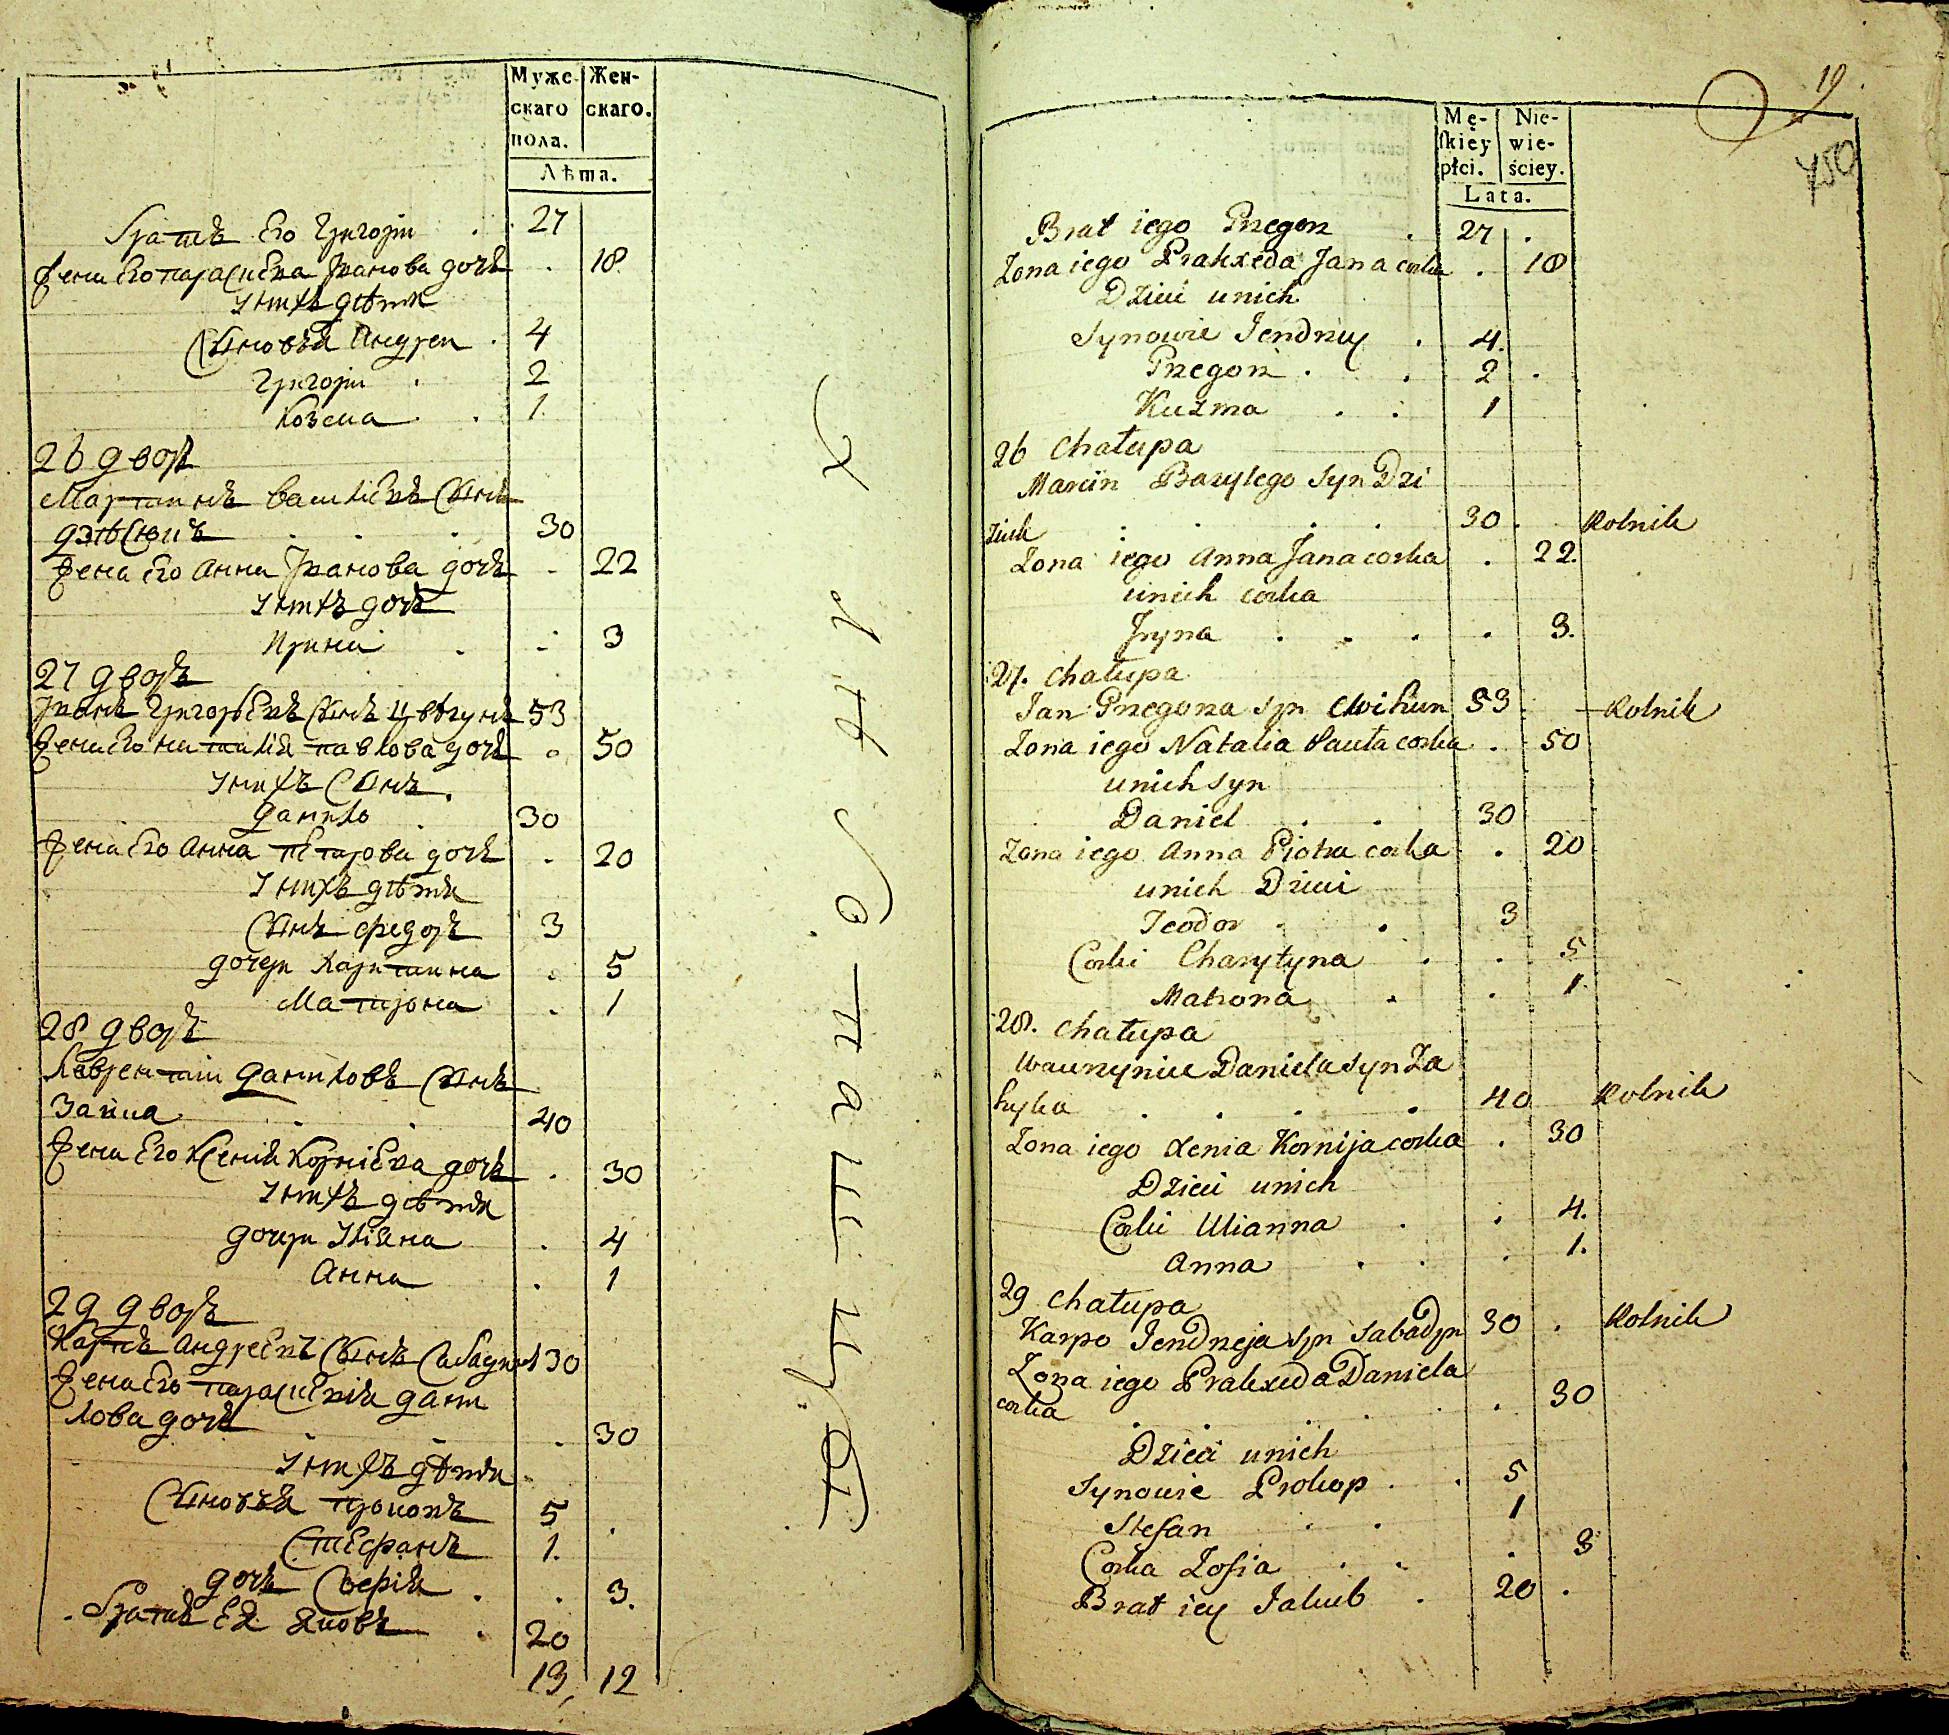 Муже-
скаго
пола.
Жен-
скаго.
Лѣта.
братъ Его Григорїи . . 27
жена Его параскева Иванова дочь . 18
У нихъ дѣти
Сыновья Андреи . 4
Григорїи . 2
Козма . 1
26 дворъ
Мартинъ василїевъ Сынъ
. . . 30
жена Его Анна Иванова дочь . 22
У нихъ дочь
Ирина . . 3
27 дворъ
Иванъ Григорьевъ Сынъ Цвѣгунъ 53
жена Его наталїя павлова дочь . 50
У нихъ Сынъ .
данило . 30
жена Его Анна Петрова дочь . 20
У нихъ дѣти
Сынъ федоръ 3
дочери Харитина . 5
Матрона . 1
28 дворъ
Лаврентїи даниловъ Сынъ
Заика . . 40
жена Его Ксенїя Корнїева дочь . 30
У нихъ дѣти
дочери Улїяна . 4
Анна . 1
29 дворъ
Карпъ Андреевъ Сынъ Сабадинъ 30
жена Его параскевїя дани
лова дочь . . . 30
У нихъ дѣти
Сыновья прокопъ 5 .
Стефанъ 1.
дочь Софїя . . 3.
братъ Ея Яковъ . 20
13, 12
Хлѣбопашцы
19
450
Mę-
ſkiey
płci.
Nie-
wie-
ściey.
Lata.
Brat iego Przegorz . 27 .
Zona iego Prakseda Jana corka . 18
Dzieci unich
Synowie Jendrzey . 4.
Przegorz . . 2 .
Kuzma . . 1
26 Chałupa
Marcin Bazylego syn Dzi
. . . . 30 . Rolnik
Zona iego Anna Jana corka . 22.
unich corka
Iryna . . . . 3.
27. Chałupa
Jan Przegorza syn Cwihun 53 . Rolnik
Zona iego Natalia Pauła corka . 50
unich syn
Daniel . . 30
Zona iego Anna Piotra corka . 20
unich Dzieci
Teodor . . 3
Corki Charytyna . . 5
Matrona . . 1.
28. Chałupa
Wawrzyniec Daniela syn Za
hyka . . . . 40 Rolnik
Zona iego Xenia Kornija corka . 30
Dzieci unich
Corki Ulianna . . 4.
Anna . . . 1.
29 Chałupa
Karpo Jendrzeja syn Sabadyn 30 . Rolnik
Zona iego Prakseda Daniela
corka . . . . 30
Dzieci unich
Synowie Prokop . . 5
Stefan . . 1
Corka Zofia . . . 3
Brat iey Jakub . 20 .